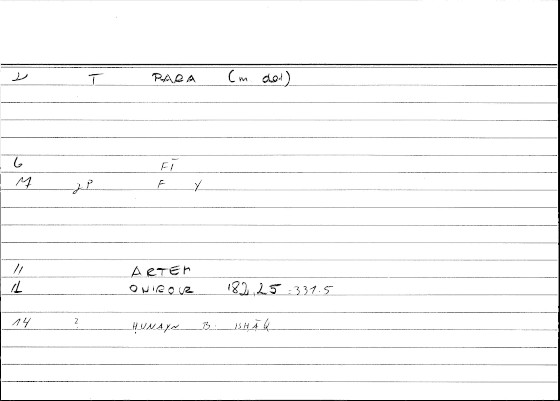 T RARA (m del)
6 FĪ
M 2P F Y
11 ARTEM
12 ONIROCR 182,25 : 331.5
14 ? ḤUNAYN B. ISḤĀḲ